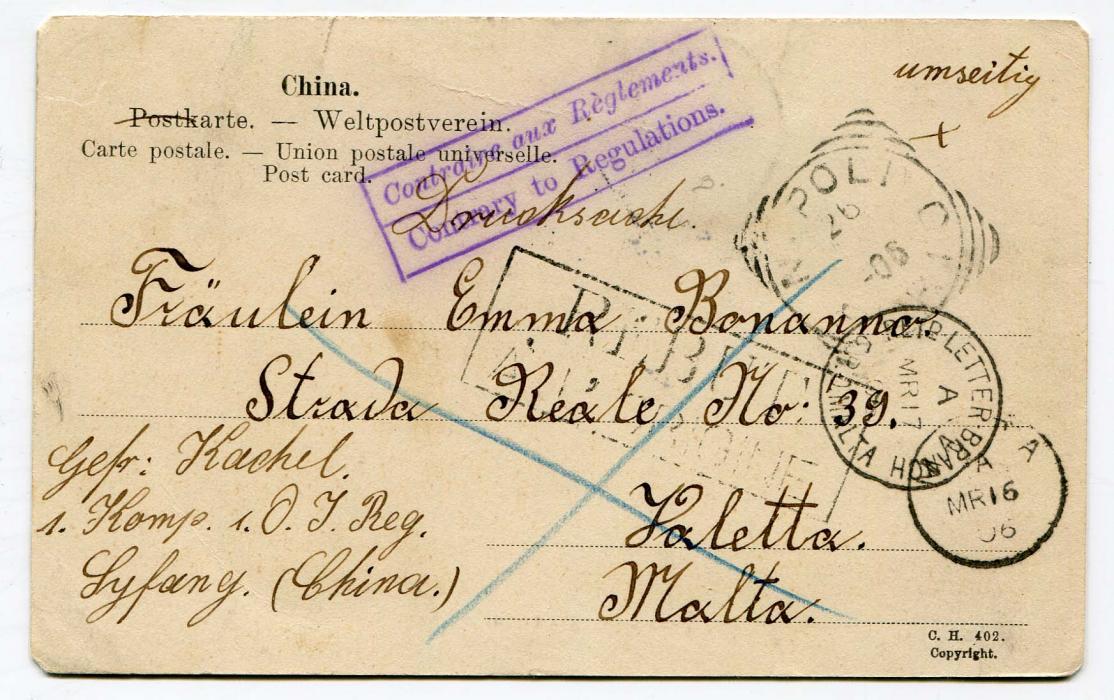 umseitig
+
China.
Postkarte. — Weltpostverein.
Carte postale. — Union postale universelle.
Post card.
Contraire aux Règlements.
Contrary to Regulations.
Drucksache.
NAPOLI
26
-06
Fräulein Emma Bonanno.
REBUT
Strada Reale No: 39.
LETTER BRANCH
A
MR 17
MALTA
A
MR 16
06
Gefr: Kachel.
1. Komp. 1. O. I. Reg.
Syfang. (China.)
Valetta.
Malta.
C. H. 402.
Copyright.